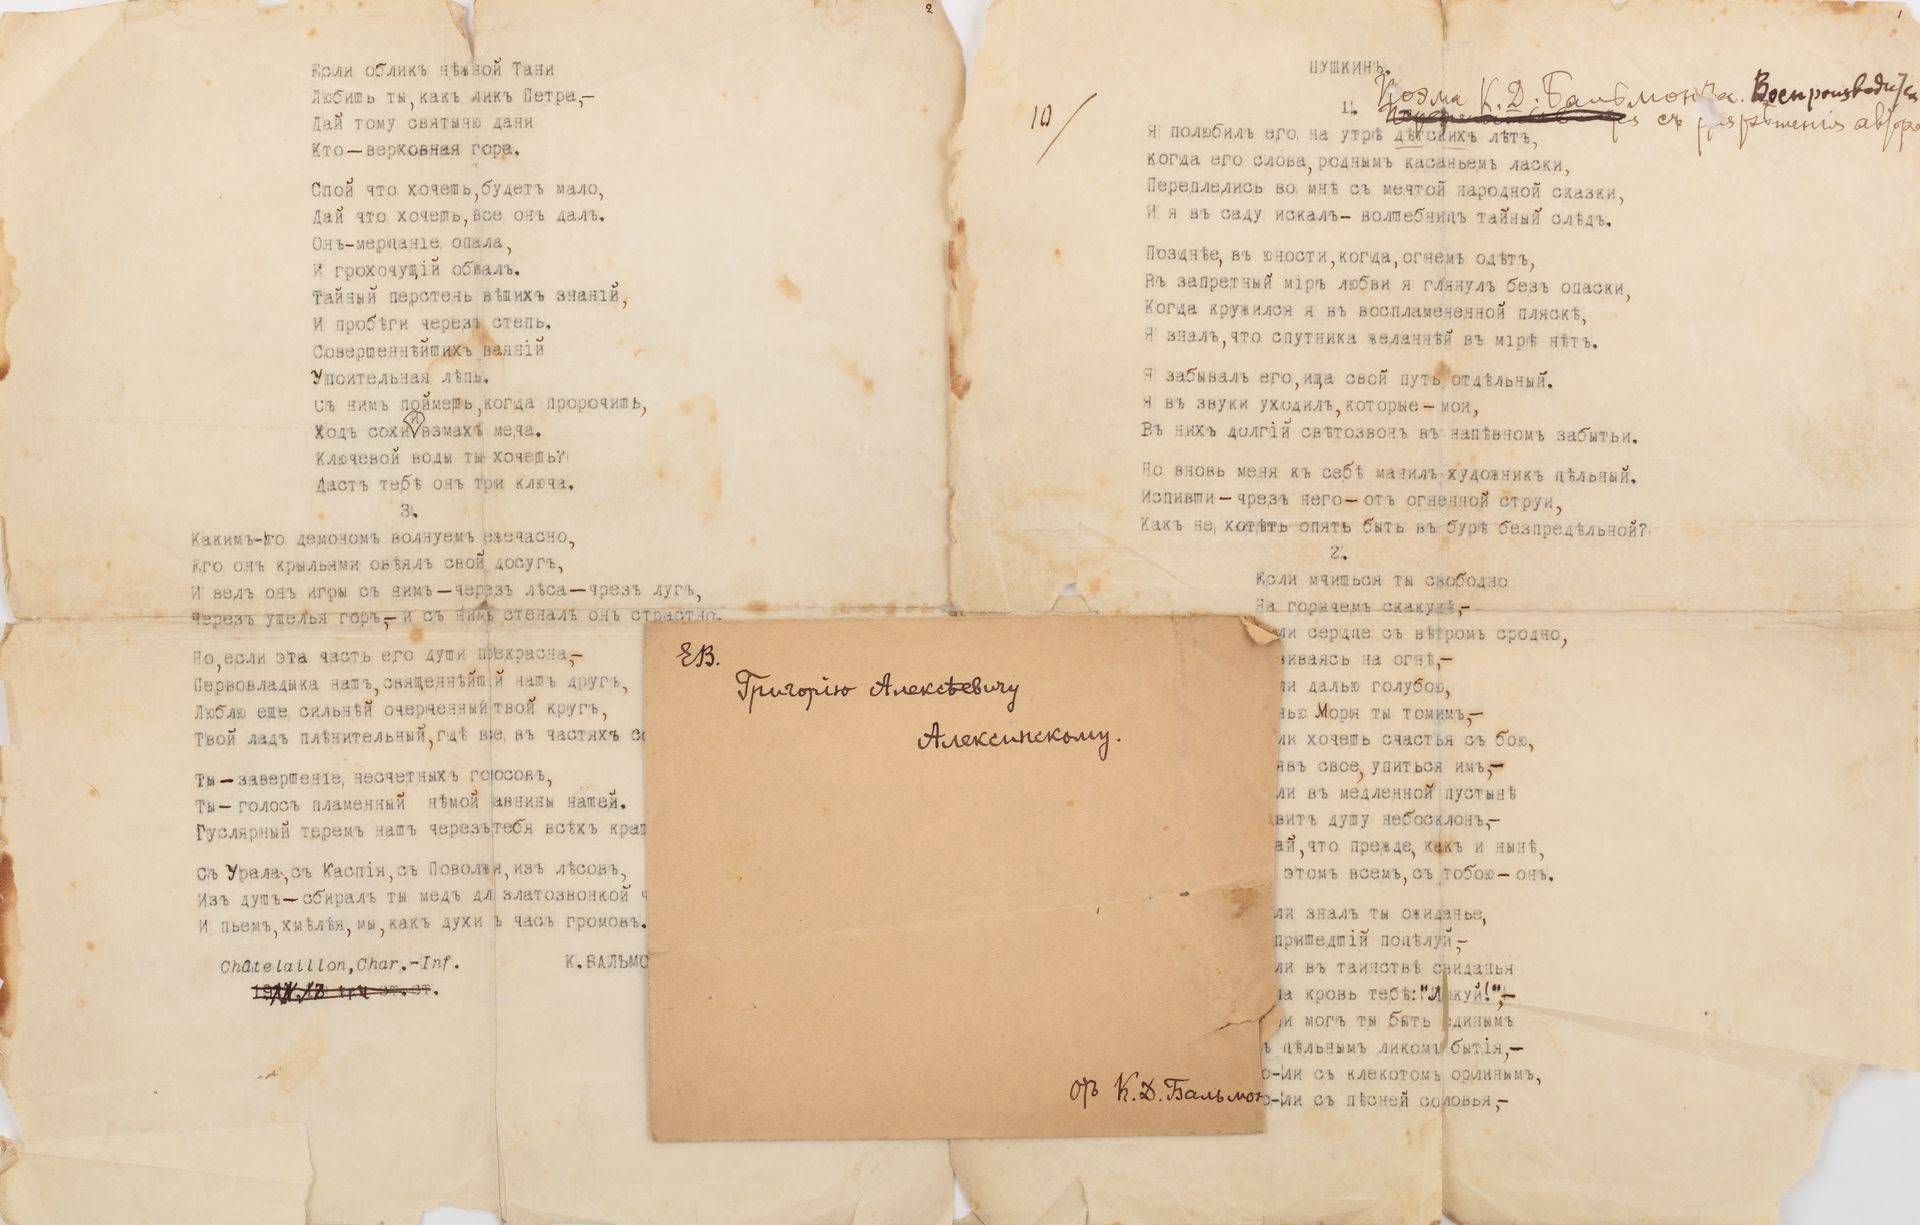 1
ПУШКИНЪ.
10/
Поэма К.Д.Бальмонта. Воспроизводится
съ разрѣшенія автора
1.
Я полюбилъ его на утрѣ дѣтскихъ лѣтъ,
Когда его слова,роднымъ касаньемъ ласки,
Переплелись во мнѣ съ мечтой народной сказки,
И я въ саду искалъ–волшебницъ тайный слѣдъ.
Позднѣе,въ юности,когда,огнемъ одѣтъ,
Въ запретный міръ любви я глянулъ безъ опаски,
Когда кружился я въ воспламененной пляскѣ,
Я зналъ,что спутника желаннѣй въ мірѣ нѣтъ.
Я забывалъ его,ища свой путь отдѣльный.
Я въ звуки уходилъ,которые–мои,
Въ нихъ долгій свѣтозвонъ въ напѣвномъ забытьи.
Но вновь меня къ себѣ манилъ художникъ цѣльный.
Испивши–чрезъ него–отъ огненной струи,
Какъ не хотѣть опять быть въ бурѣ безпредѣльной?
2.
Если мчишься ты свободно
На горячемъ скакунѣ,–
сердце съ вѣтромъ сродно,
на огнѣ,–
далью голубою,
Моря ты томимъ,–
хочешь счастья съ бою,
свое,упиться имъ,–
въ медленной пустынѣ
душу небосклонъ,–
что прежде,какъ и нынѣ,
этомъ всемъ,съ тобою–онъ.
зналъ ты ожиданье,
поцѣлуй,–
въ таинствѣ свиданья
кровь тебѣ:"Ликуй!",–
могъ ты быть единымъ
цѣльнымъ ликомъ бытія,–
съ клекотомъ орлинымъ,
съ пѣсней соловья,–
2
Если обликъ нѣжной Тани
Любишь ты,какъ ликъ Петра,–
Дай тому святыню дани
Кто–верховная гора.
Спой что хочешь,будетъ мало,
Дай что хочешь,все онъ далъ.
Онъ–мерцаніе опала,
И грохочущій обвалъ.
Тайный перстень вѣщихъ знаній,
И пробѣги черезъ степь.
Совершеннѣйшихъ ваяній
Упоительная лѣпь.
Съ нимъ поймешь,когда пророчишь,
Ходъ сохи и взмахъ меча.
Ключевой воды ты хочешь?
Дастъ тебѣ онъ три ключа.
3.
Какимъ-то демономъ волнуемъ ежечасно,
Его онъ крыльями овѣялъ свой досугъ,
И велъ онъ игры съ нимъ–черезъ лѣса–чрезъ лугъ,
Черезъ ущелья горъ,–и съ нимъ стеналъ онъ страстно.
Но,если эта часть его души прекрасна,–
Первовладыка нашъ,священнѣйшій нашъ другъ,
Люблю еще сильнѣй очерченный твой кругъ,
Твой ладъ плѣнительный,гдѣ все въ частяхъ
Ты–завершеніе несчетныхъ голосовъ,
Ты–голосъ пламенный нѣмой равнины нашей.
Гуслярный теремъ нашъ черезъ тебя всѣхъ
Съ Урала,съ Каспія,съ Поволжья,изъ лѣсовъ,
Изъ душъ–сбиралъ ты медъ для златозвонкой
И пьемъ,хмѣлѣя,мы,какъ духи въ часъ громовъ.
Châtelaillon,Char.-Inf.
К.БАЛЬМО
ЕВ.
Григорію Алексѣевичу
Алексинскому.
отъ К.Д.Бальмон